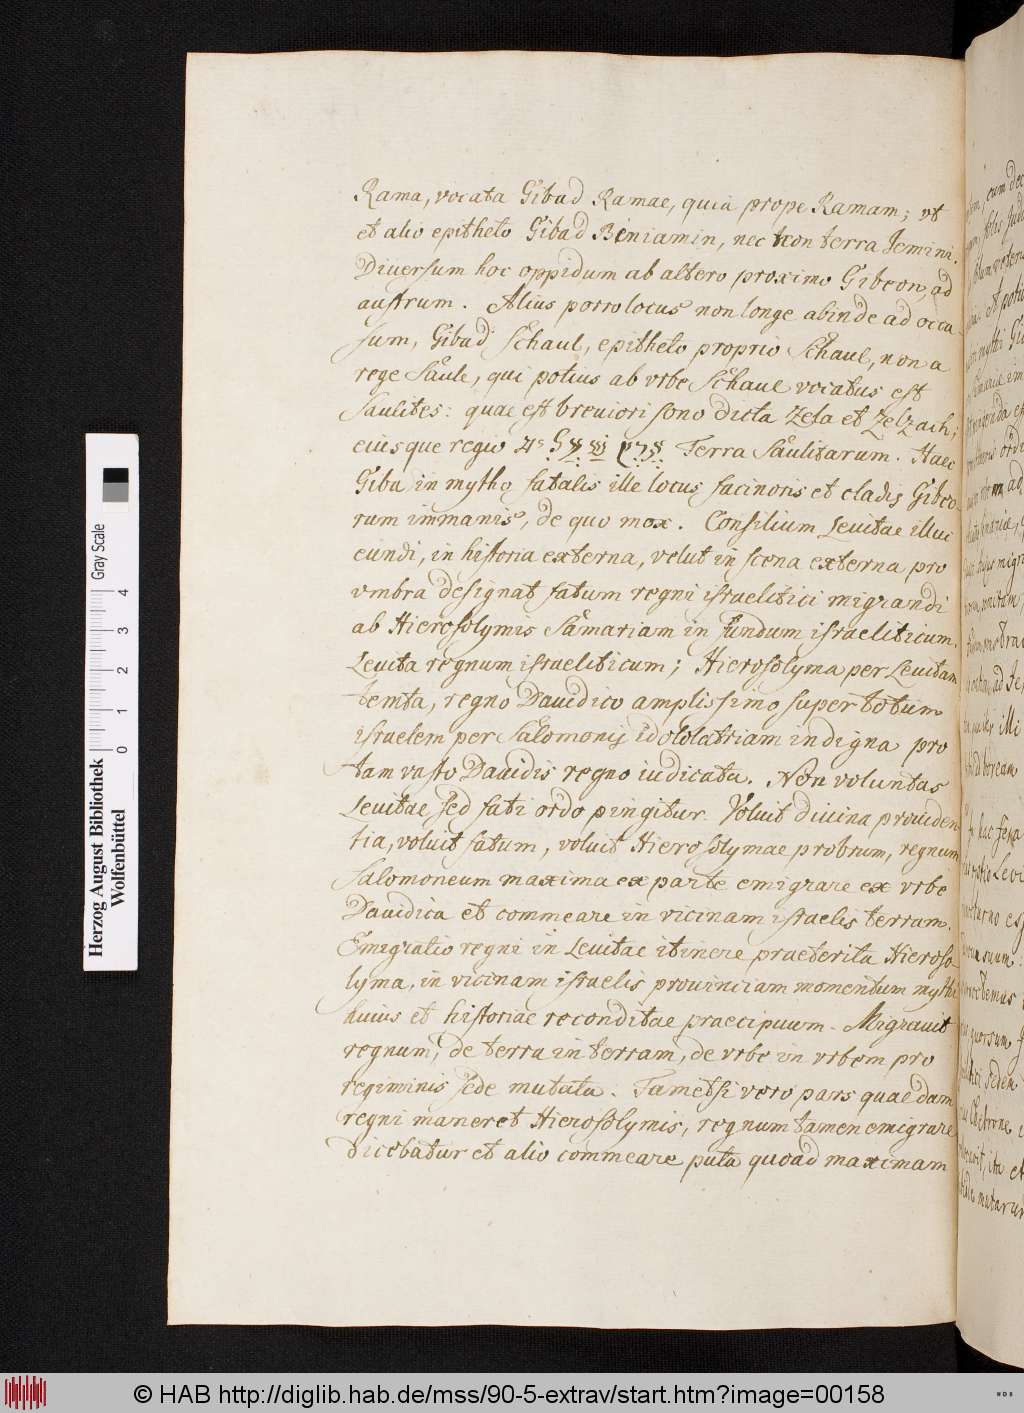 Rama, vocata Gibad Ramae, quia prope Ramam; vt
et alio epitheto Gibad Biniamin, nec non terra Iemini.
Diuersum hoc oppidum ab altero proximo Gibeon, ad
austrum. Alius porro locus non longe abinde ad occa-
sum, Gibad Schaul, epitheto proprio Schaul, non a
rege Saule, qui potius ab vrbe Schaul vocatus est
Saulites: quae est breuiori sono dicta Zela et Zelzach;
eiusque regio Terra Saulitarum. Haec
Giba in mytho fatalis ille locus facinoris et cladis Gibeo-
rum immanis, de quo mox. Consilium Leuitae illuc
eundi, in historia externa, velut in scena externa pro
vmbra designat fatum regni israelitici migrandi
ab Hierosolymis Samariam in fundum israeliticum.
Leuita regnum israeliticum; Hierosolyma per Leuitam
temta, regno Dauidico amplissimo super totum
israelem per Salomonis idololatriam indigna pro
tam vasto Dauidis regno iudicata. Non voluntas
Leuitae sed fati ordo pingitur. Voluit diuina prouiden-
tia, voluit fatum, voluit Hierosolymae probrum, regnum
Salomoneum maxima ex parte emigrare ex vrbe
Dauidica et commeare in vicinam israelis terram.
Emigratio regni in Leuitae itinere praeterita Hieroso-
lyma, in vicinam israelis prouinciam momentum mythi
huius et historiae reconditae praecipuum. Migrauit
regnum, de terra in terram, de vrbe in vrbem pro
regiminis sede mutata. Tametsi vero pars quaedam
regni maneret Hierosolymis, regnum tamen emigrare
dicebatur et alio commeare puta quoad maximam
Herzog August Bibliothek
Wolfenbüttel
Gray Scale
0 1 2 3 4
© HAB http://diglib.hab.de/mss/90-5-extrav/start.htm?image=00158